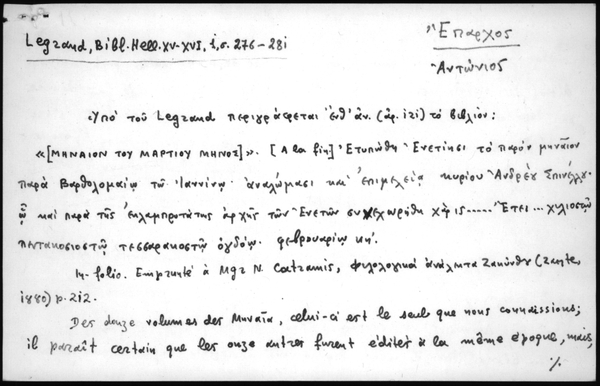 Legrand, Bibl. Hell. XV-XVI, 1, σ. 276-281
Ἔπαρχος
Ἀντώνιος
Ὑπὸ τοῦ Legrand περιγράφεται ἐνθ' ἀν. (ἀρ. 121) τὸ βιβλίον:
«[ΜΗΝΑΙΟΝ ΤΟΥ ΜΑΡΤΙΟΥ ΜΗΝΟΣ]». [A la fin] Ἐτυπώθη Ἐνετίησι τὸ παρὸν μηναῖον
παρὰ Βαρθολομαίῳ τῷ Ἰαννίνῳ· ἀναλώμασι καὶ ἐπιμελείᾳ κυρίου Ἀνδρέου Σπινέλλου·
ᾧ καὶ παρὰ τῆς ἐκλαμπροτάτης ἀρχῆς τῶν Ἐνετῶν συνεχωρήθη χάρις..... Ἔτει ... χιλιοστῷ
πεντακοσιοστῷ τεσσαρακοστῷ ὀγδόῳ. φεβρουαρίῳ κη΄.
In-folio. Emprunté à Mgr N. Catramis, Φιλολογικὰ ἀνάλεκτα Ζακύνθου (Zante,
1880) p. 212.
Des douze volumes des Μηναῖα, celui-ci est le seul que nous connaissions;
il paraît certain que les onze autres furent édités à la même époque, mais,
./.